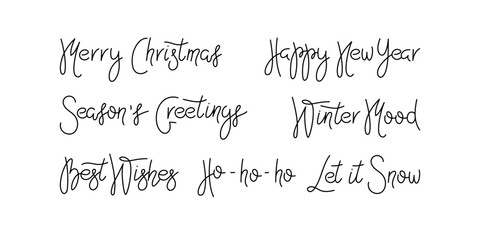 Merry Christmas Happy New Year
Season's Greetings Winter Mood
Best Wishes Ho-ho-ho Let it Snow